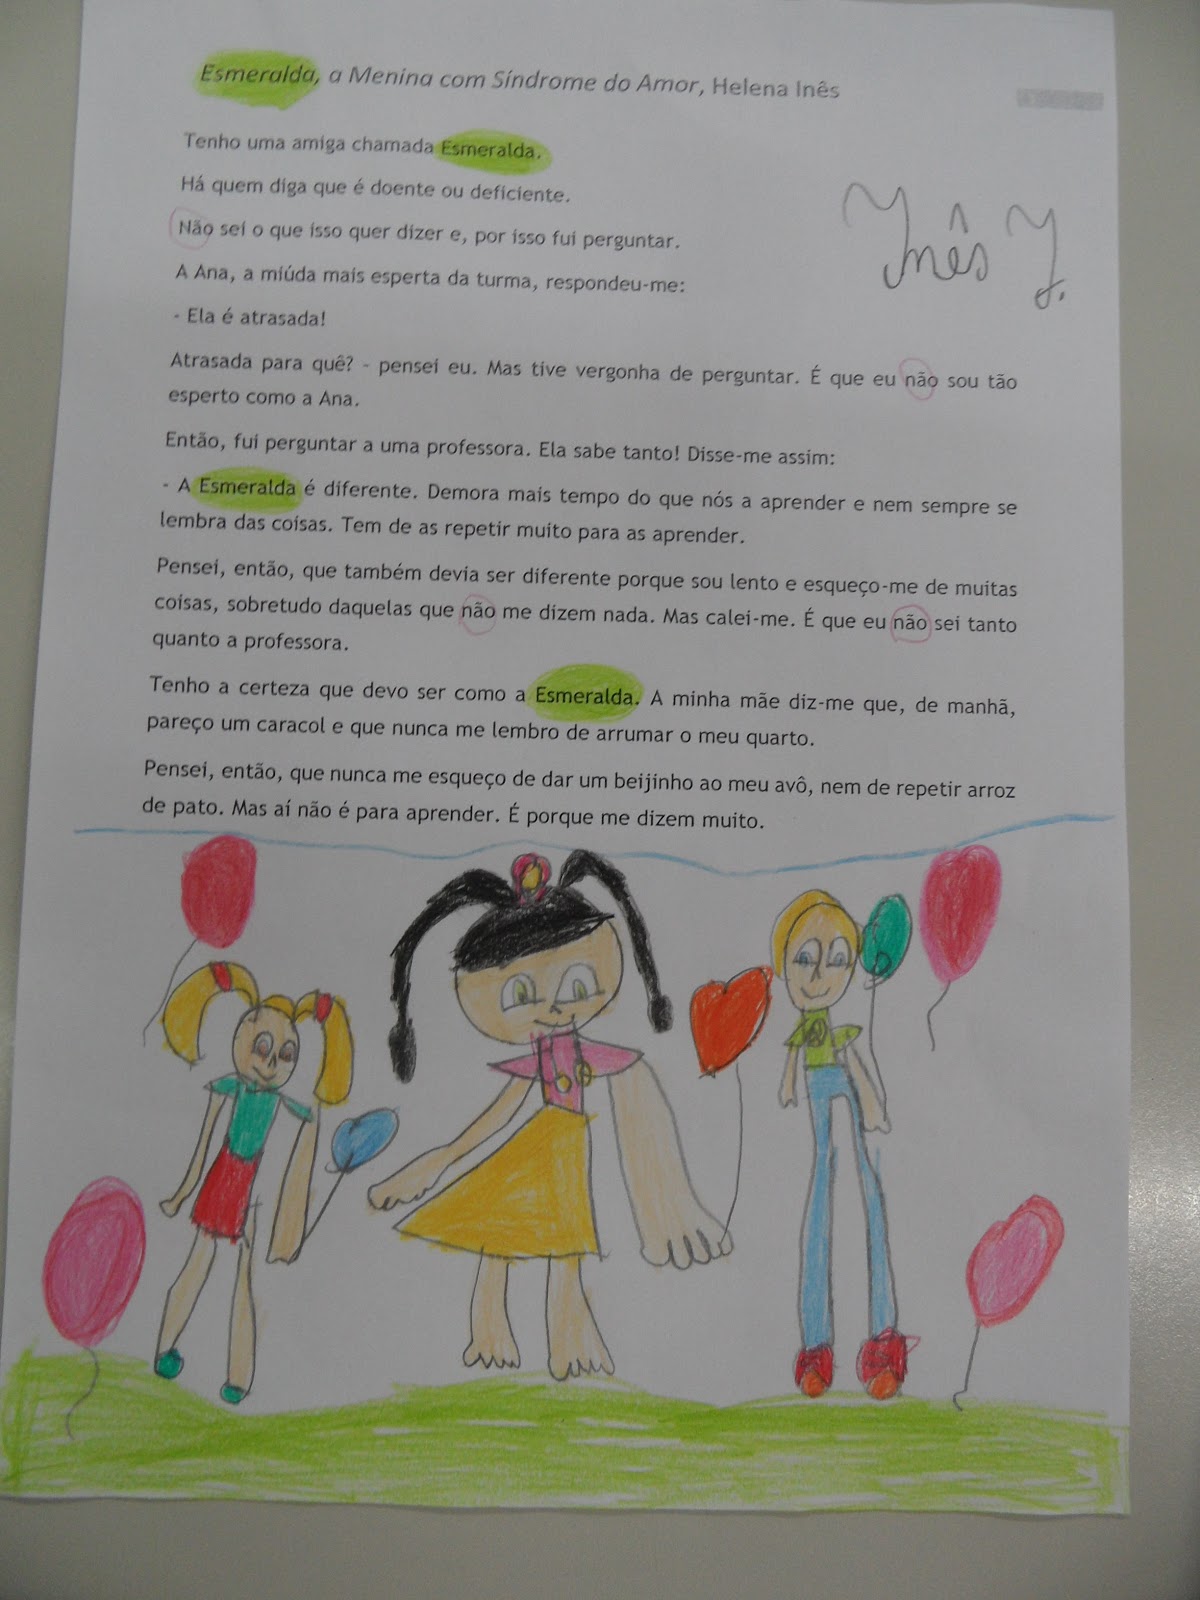 Esmeralda, a Menina com Síndrome do Amor, Helena Inês
Tenho uma amiga chamada Esmeralda.
Há quem diga que é doente ou deficiente.
Não sei o que isso quer dizer e, por isso fui perguntar.
A Ana, a miúda mais esperta da turma, respondeu-me:
- Ela é atrasada!
Atrasada para quê? - pensei eu. Mas tive vergonha de perguntar. É que eu não sou tão
esperto como a Ana.
Então, fui perguntar a uma professora. Ela sabe tanto! Disse-me assim:
- A Esmeralda é diferente. Demora mais tempo do que nós a aprender e nem sempre se
lembra das coisas. Tem de as repetir muito para as aprender.
Pensei, então, que também devia ser diferente porque sou lento e esqueço-me de muitas
coisas, sobretudo daquelas que não me dizem nada. Mas calei-me. É que eu não sei tanto
quanto a professora.
Tenho a certeza que devo ser como a Esmeralda. A minha mãe diz-me que, de manhã,
pareço um caracol e que nunca me lembro de arrumar o meu quarto.
Pensei, então, que nunca me esqueço de dar um beijinho ao meu avô, nem de repetir arroz
de pato. Mas aí não é para aprender. É porque me dizem muito.
Inês Y.